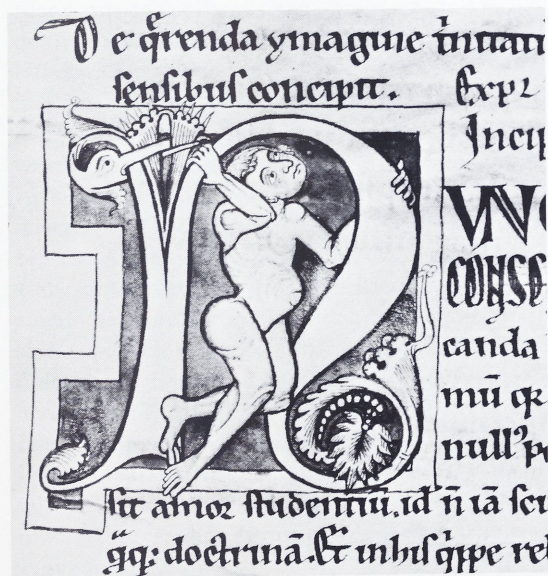 De q̄renda ymagine t̄nitati
sensibus concipit. Expl
Incip
N VNC
CONSE
canda
mū qr
nullꝰ po
sit amor studentiū. id ñ iā sci
q̄q; doctrinā. Et in his q̄ppe re